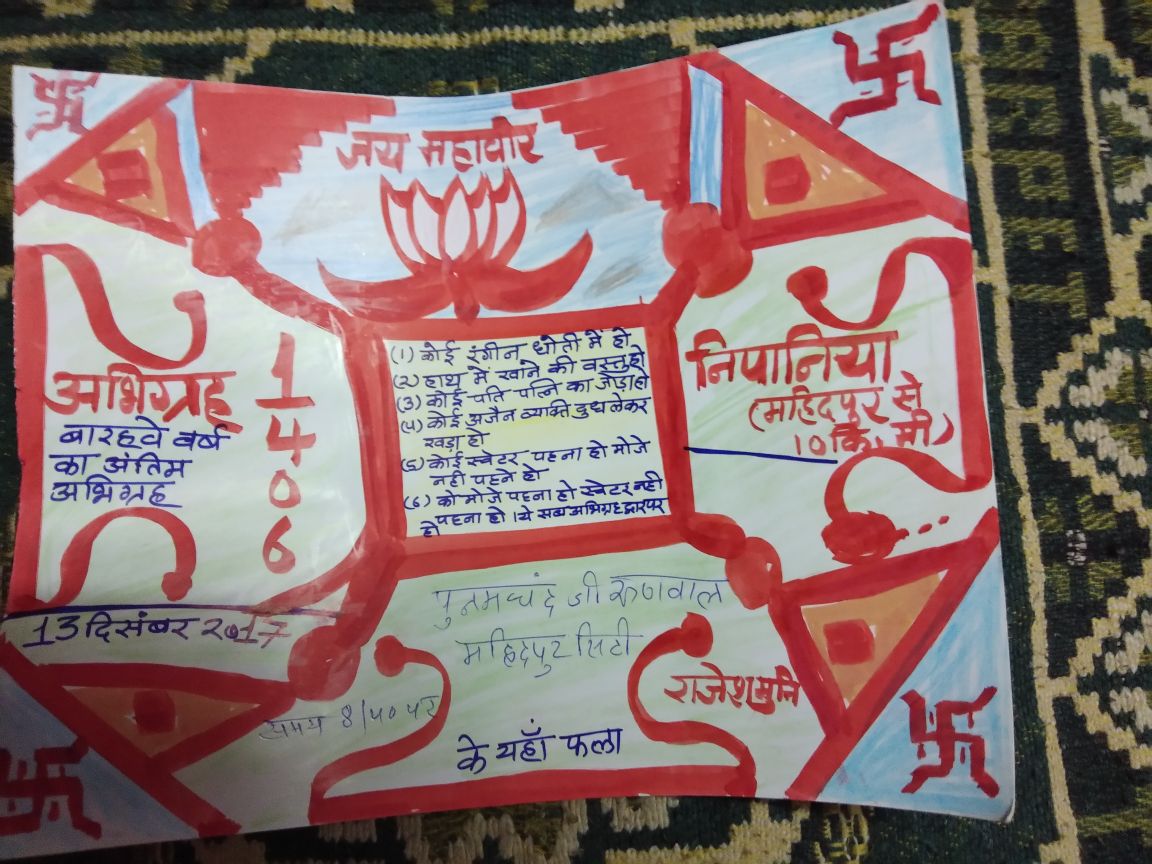 जय महावीर
अभिग्रह
1
4
0
6
बारहवे वर्ष
का अंतिम
अभिग्रह
13 दिसंबर 2017
(1) कोई रंगीन धोती में हो
(2) हाथ मे खाने की वस्तु हो
(3) कोई पति पत्नि का जोड़ा हो
(4) कोई अजैन व्यक्ति दुध लेकर
खड़ा हो
(5) कोई स्वेटर पहना हो मोजे
नही पहने हो
(6) को मोजे पहना हो स्वेटर नही
पहना हो । ये सब अभिग्रह द्वार पर
हो
निपानिया
(महिदपुर से
10 कि. मी)
पुनमचंद जी रुणवाल
महिदपुर सिटी
राजेशमुनि
समय 8/40 पर
के यहाँ फला